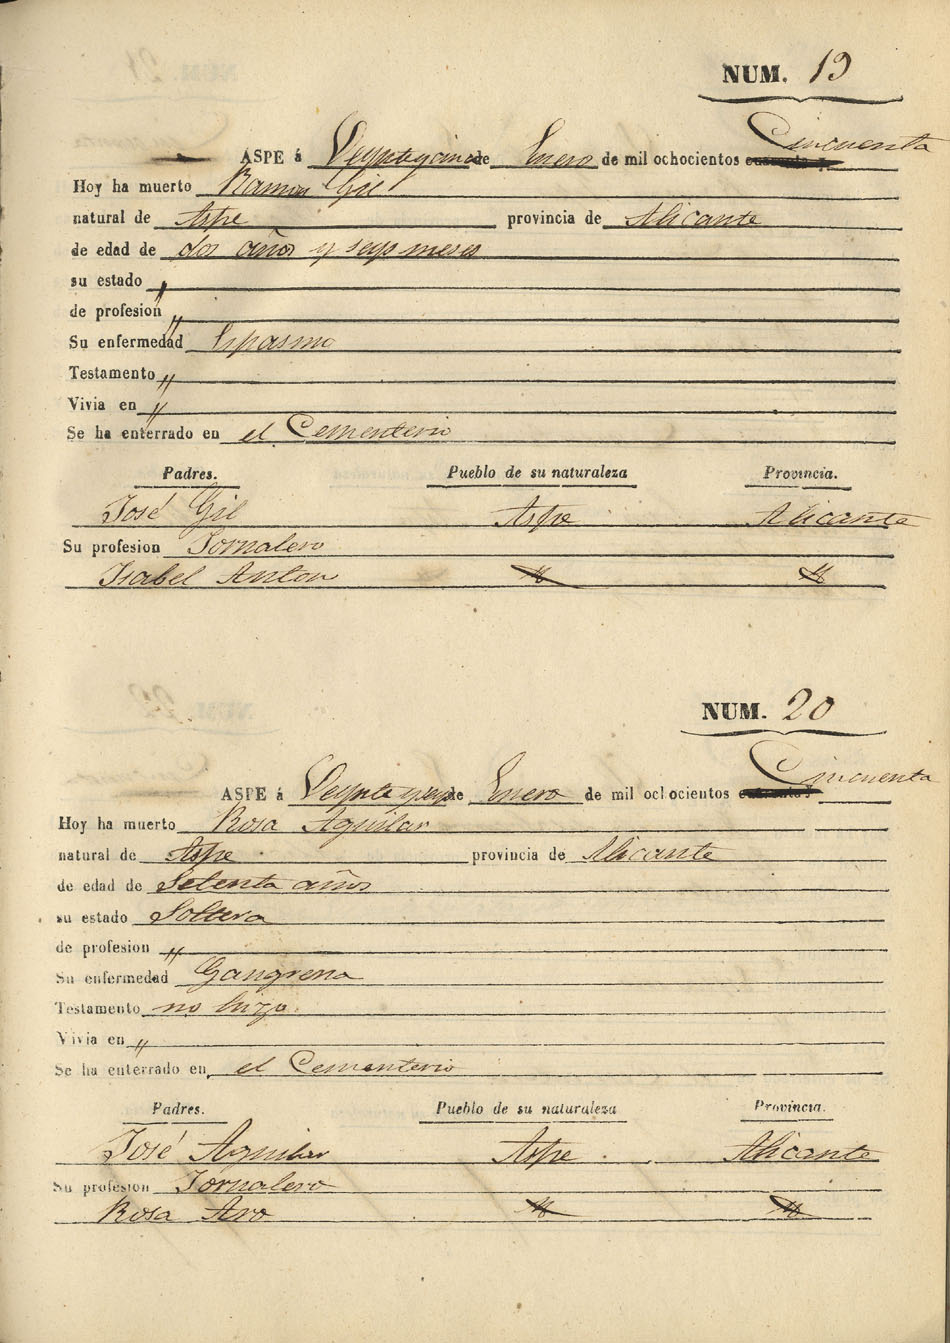 NUM. 19
ASPE á Veynteycinco de Enero de mil ochocientos Cincuenta
Hoy ha muerto Ramon Gil
natural de Aspe provincia de Alicante
de edad de dos años y seys meses
su estado "
de profesion "
Su enfermedad Espasmo
Testamento "
Vivia en "
Se ha enterrado en el Cementerio
Padres. Pueblo de su naturaleza Provincia.
José Gil Aspe Alicante
Su profesion Jornalero
Isabel Anton " "
NUM. 20
ASPE á Veynte y seys de Enero de mil ochocientos Cincuenta
Hoy ha muerto Rosa Aguilar
natural de Aspe provincia de Alicante
de edad de Setenta años
su estado Soltera
de profesion "
Su enfermedad Gangrena
Testamento no hizo.
Vivia en "
Se ha enterrado en el Cementerio
Padres. Pueblo de su naturaleza Provincia.
José Aguilar Aspe Alicante
Su profesion Jornalero
Rosa Aro " "